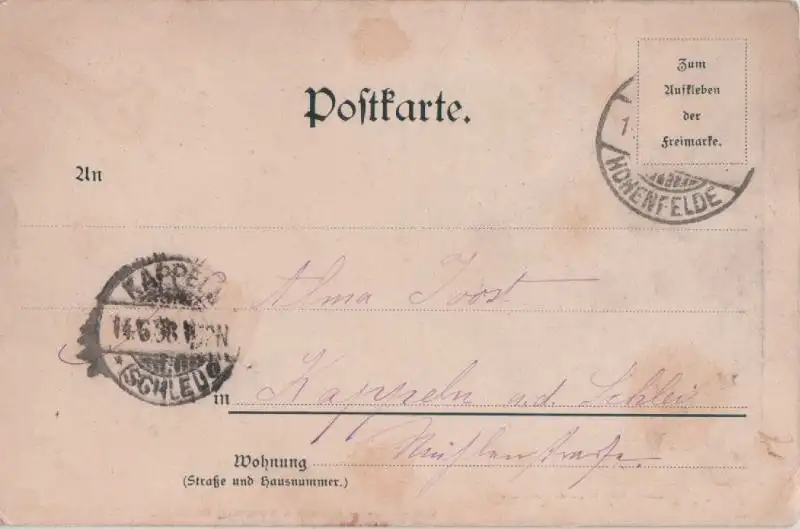 Postkarte.
Zum
Aufkleben
der
Freimarke.
HOHENFELDE
An
Alma Joost
KAPPELN
14.6.98
(SCHLEI)
in Kappeln a.d. Schlei
Mühlenstrasse.
Wohnung
(Straße und Hausnummer.)